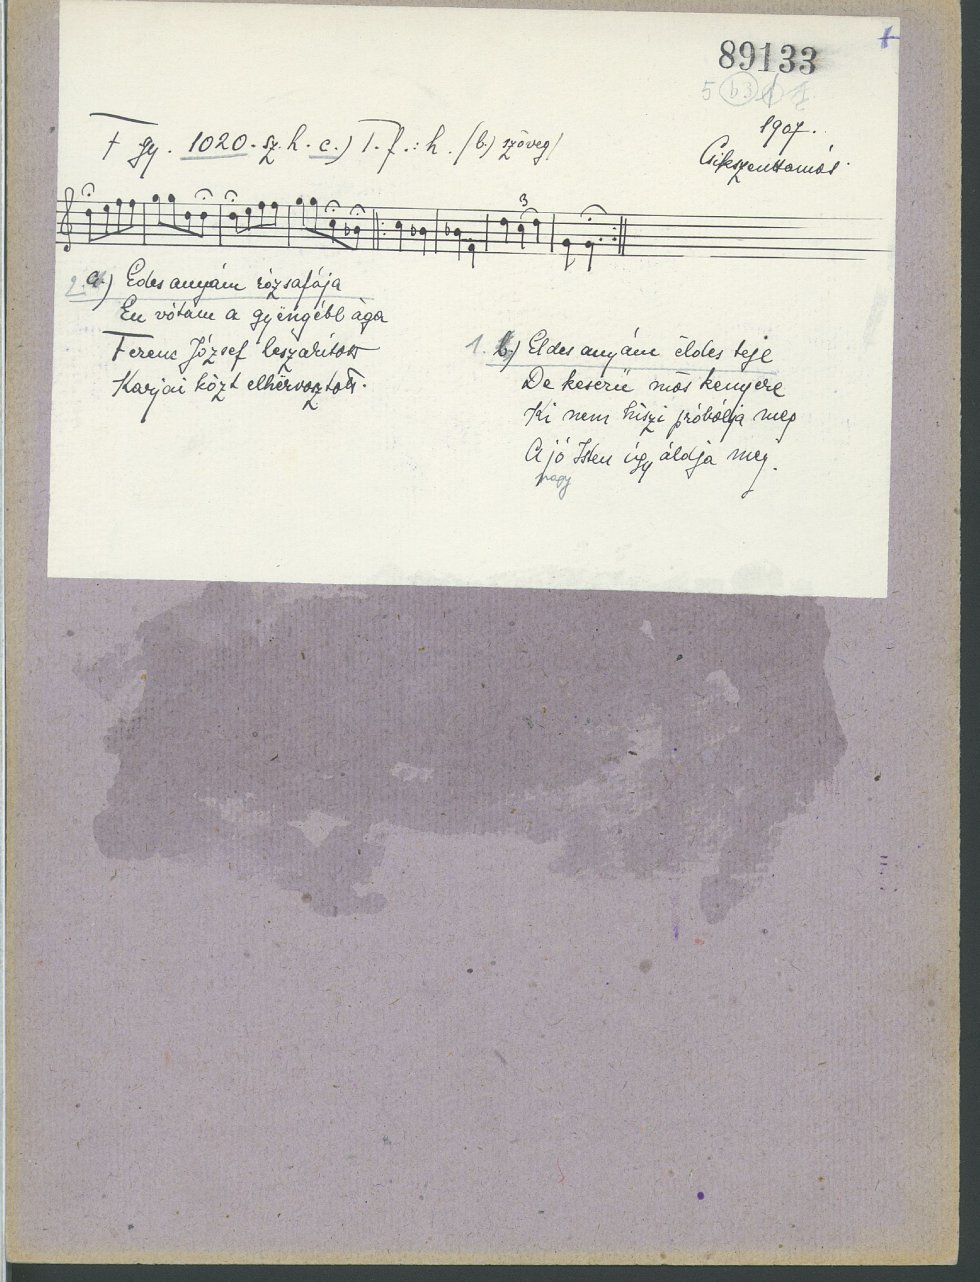 89133
5 b3
1907.
Csikszenttamás.
F gy. 1020. sz. h. c.) T. f.: h. (b.) szöveg/
3
2. a) Édes anyám rózsafája
Én vótam a gyëngébb ága
Ferenc József leszakított
Karjai közt elhërvasztott.
1. b.) Éldes anyám éldes teje
De keserü más kenyere
Ki nem hiszi próbálja meg
A jó Isten úgy áldja meg.
nagy